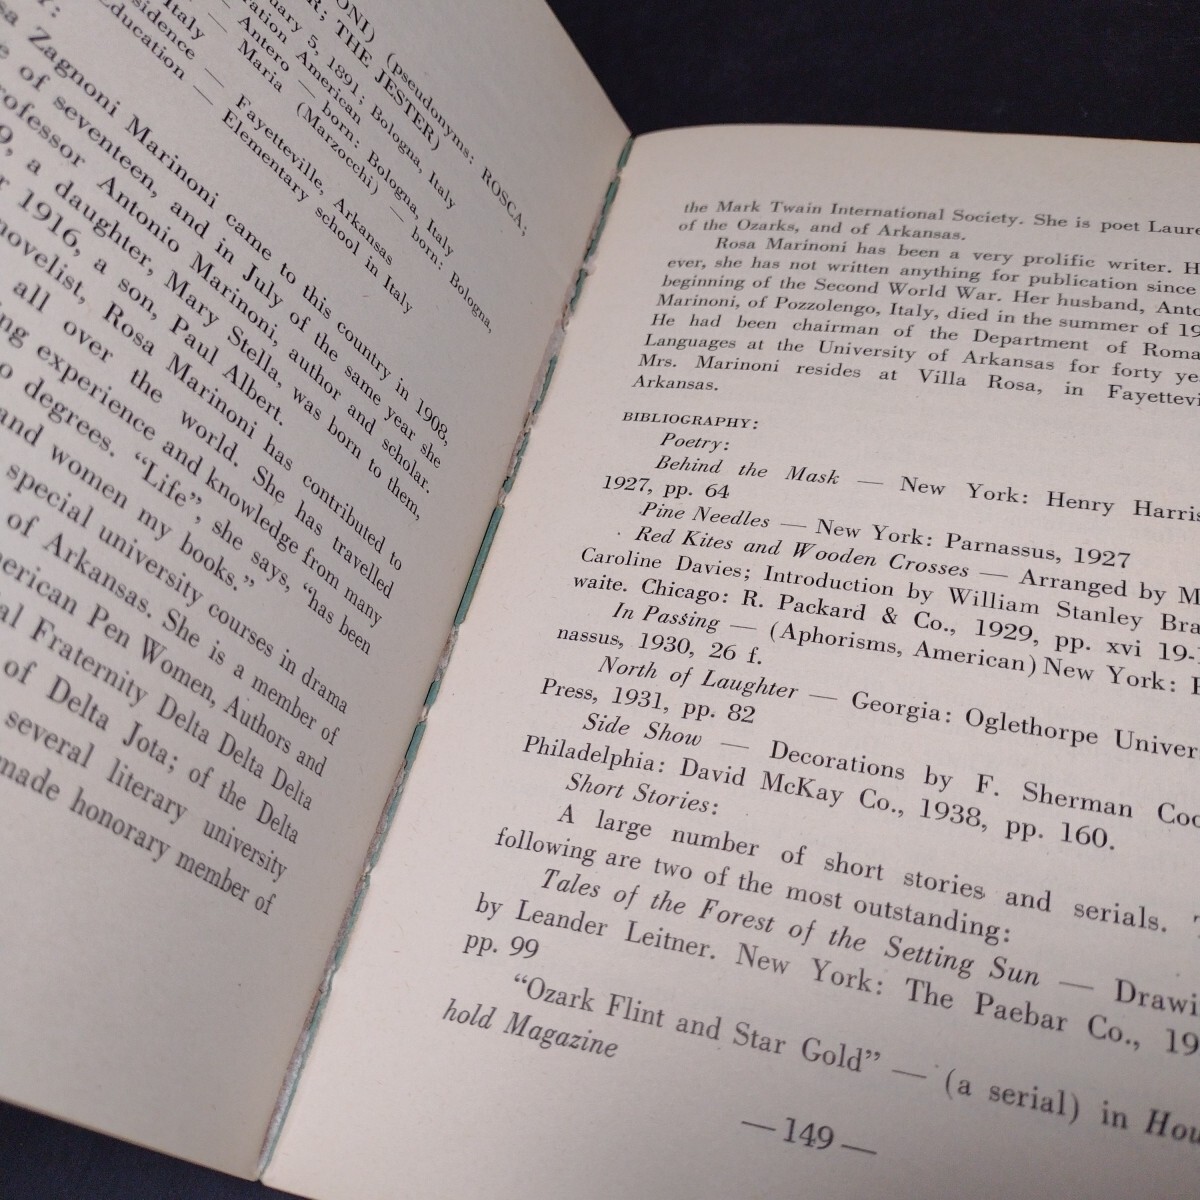 ONI) (pseudonyms: ROSCA;
R; THE JESTER)
uary 5, 1891; Bologna, Italy
ration American
Antero — born: Bologna, Italy
Maria (Marzocchi) — born: Bologna,
Italy
sidence — Fayetteville, Arkansas
Education — Elementary school in Italy
Y:
sa Zagnoni Marinoni came to this country in 1908,
e of seventeen, and in July of the same year she
rofessor Antonio Marinoni, author and scholar.
9, a daughter, Mary Stella, was born to them,
r 1916, a son, Paul Albert.
novelist, Rosa Marinoni has contributed to
all over the world. She has travelled
ng experience and knowledge from many
o degrees. “Life”, she says, “has been
and women my books.”
special university courses in drama
of Arkansas. She is a member of
erican Pen Women, Authors and
al Fraternity Delta Delta Delta
of Delta Jota; of the Delta
several literary university
made honorary member of
the Mark Twain International Society. She is poet Laure
of the Ozarks, and of Arkansas.
Rosa Marinoni has been a very prolific writer. H
ever, she has not written anything for publication since
beginning of the Second World War. Her husband, Anto
Marinoni, of Pozzolengo, Italy, died in the summer of 19
He had been chairman of the Department of Roma
Languages at the University of Arkansas for forty ye
Mrs. Marinoni resides at Villa Rosa, in Fayettevi
Arkansas.
BIBLIOGRAPHY:
Poetry:
Behind the Mask — New York: Henry Harris
1927, pp. 64
Pine Needles — New York: Parnassus, 1927
Red Kites and Wooden Crosses — Arranged by M
Caroline Davies; Introduction by William Stanley Bra
waite. Chicago: R. Packard & Co., 1929, pp. xvi 19-
In Passing — (Aphorisms, American) New York: P
nassus, 1930, 26 f.
North of Laughter — Georgia: Oglethorpe Univer
Press, 1931, pp. 82
Side Show — Decorations by F. Sherman Coo
Philadelphia: David McKay Co., 1938, pp. 160.
Short Stories:
A large number of short stories and serials. T
following are two of the most outstanding:
Tales of the Forest of the Setting Sun — Drawi
by Leander Leitner. New York: The Paebar Co., 19
pp. 99
“Ozark Flint and Star Gold” — (a serial) in Hou
hold Magazine
—149—